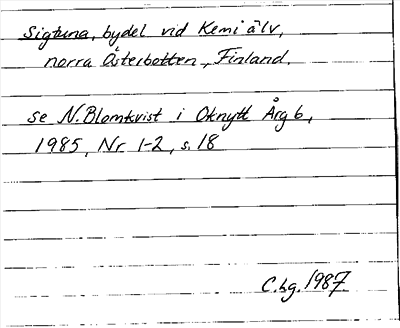 Sigtuna, bydel vid Kemi älv,
norra Österbotten, Finland.
se N. Blomkvist i Oknytt Årg 6,
1985, Nr 1-2, s. 18
C.bg. 1987